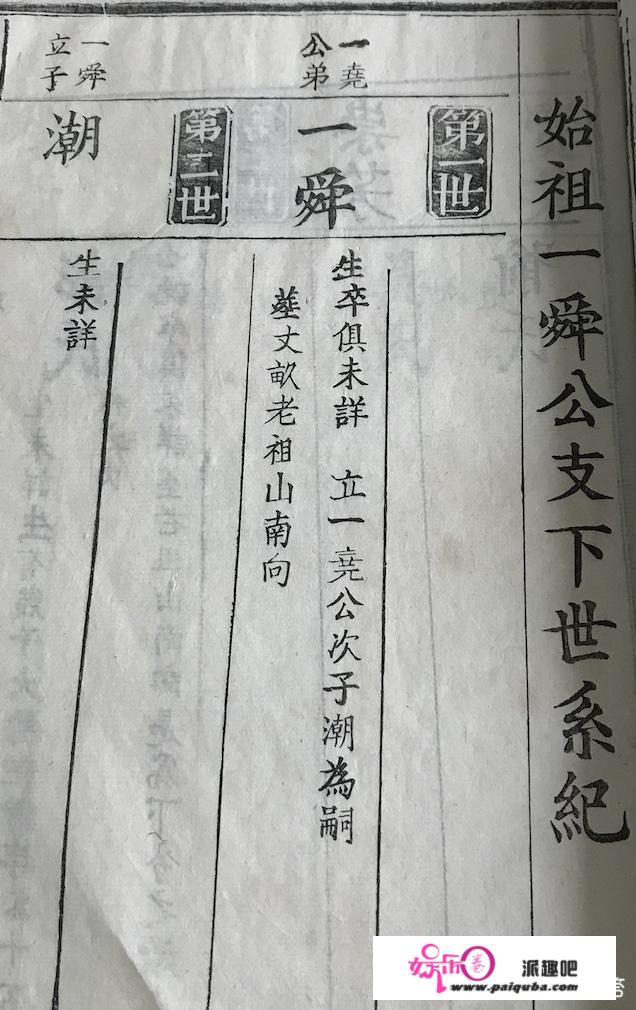 始祖一舜公支下世系紀
第一世
一堯
公弟
一舜
生卒俱未詳 立一堯公次子潮為嗣
塟丈畝老祖山南向
第二世
一舜
立子
潮
生未詳
娱币圈
派趣吧
www.paiquba.com